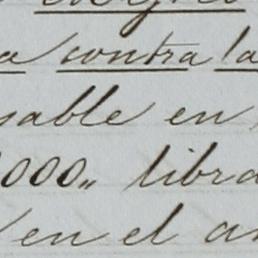 a contra la
sable en
000„ libra
en el a